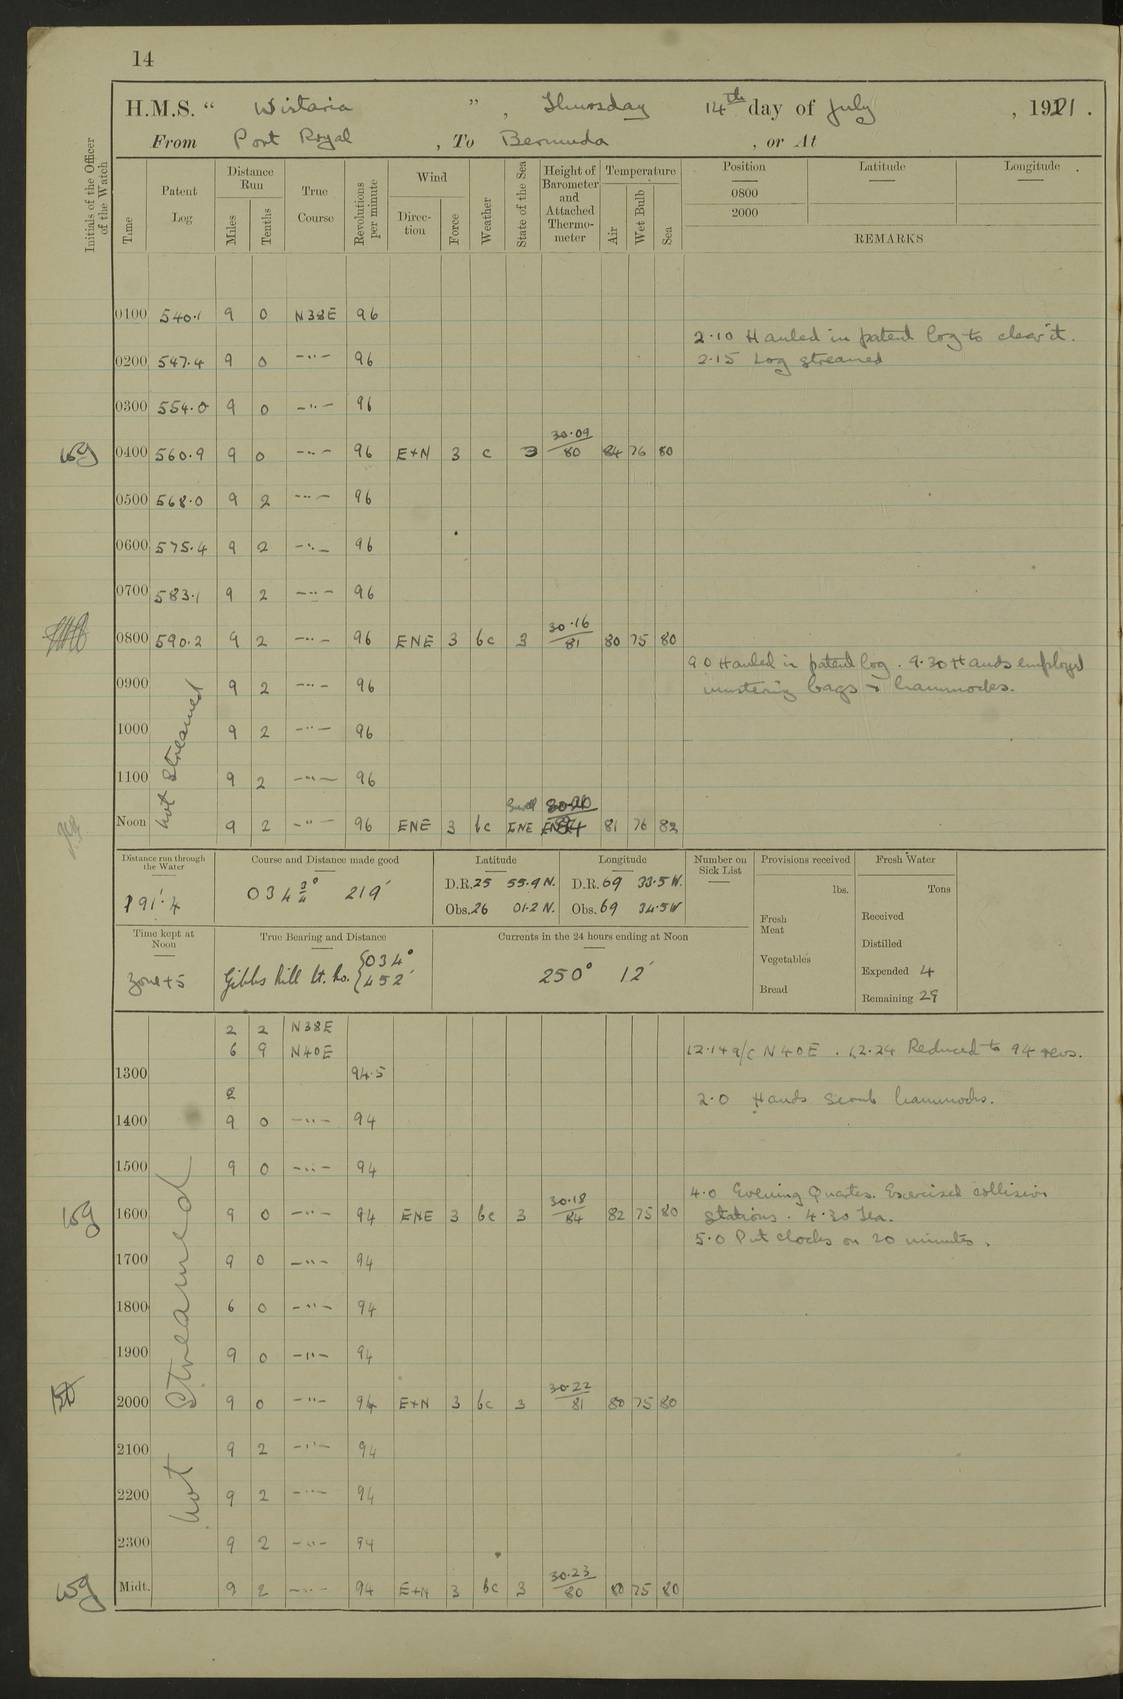 14
H.M.S. “ Wistaria ”, Thursday 14th day of July, 1921.
From Port Royal, To Bermuda, or At
Initials of the Officer of the Watch
Time
Patent Log
Distance Run
Miles
Tenths
True Course
Revolutions per minute
Wind
Direction
Force
Weather
State of the Sea
Height of Barometer and Attached Thermometer
Temperature
Air
Wet Bulb
Sea
Position Latitude Longitude
0800
2000
REMARKS
0100 540.1 9 0 N38E 96
2.10 Hauled in patent log to clear it.
0200 547.4 9 0 —"— 96
2.15 Log streamed
0300 554.0 9 0 —"— 96
0400 560.9 9 0 —"— 96 E+N 3 c 3 30.09/80 84 76 80
0500 568.0 9 2 —"— 96
0600 575.4 9 2 —"— 96
0700 583.1 9 2 —"— 96
0800 590.2 9 2 —"— 96 ENE 3 bc 3 30.16/81 80 75 80
9.0 Hauled in patent log. 9.30 Hands employed
mustering bags & hammocks.
not streamed
0900 9 2 —"— 96
1000 9 2 —"— 96
1100 9 2 —"— 96
Noon 9 2 —"— 96 ENE 3 bc Swell ENE 81 76 82
Distance run through the Water
191'.4
Course and Distance made good
034 3/4° 219'
Latitude
D.R. 25 55.9 N.
Obs. 26 01.2 N.
Longitude
D.R. 69 33.5 W.
Obs. 69 34.5 W
Number on Sick List
Provisions received
lbs.
Fresh Meat
Vegetables
Bread
Fresh Water
Tons
Received
Distilled
Expended 4
Remaining 29
Time kept at Noon
Zone +5
True Bearing and Distance
Gibbs hill lt. ho. {034° 452'
Currents in the 24 hours ending at Noon
250° 12'
2 2 N38E
6 9 N40E
12.14 a/c N40E. 12.24 Reduced to 94 revs.
1300 94.5
2.0 Hands scrub hammocks.
1400 9 0 —"— 94
not streamed
1500 9 0 —"— 94
4.0 Evening Quarters. Exercised collision
1600 9 0 —"— 94 ENE 3 bc 3 30.18/84 82 75 80
stations. 4.30 Tea.
5.0 Put clocks on 20 minutes.
1700 9 0 —"— 94
1800 6 0 —"— 94
1900 9 0 —"— 94
2000 9 0 —"— 94 E+N 3 bc 3 30.22/81 80 75 80
2100 9 2 —"— 94
2200 9 2 —"— 94
2300 9 2 —"— 94
Midt. 9 2 —"— 94 E+N 3 bc 3 30.23/80 80 75 80